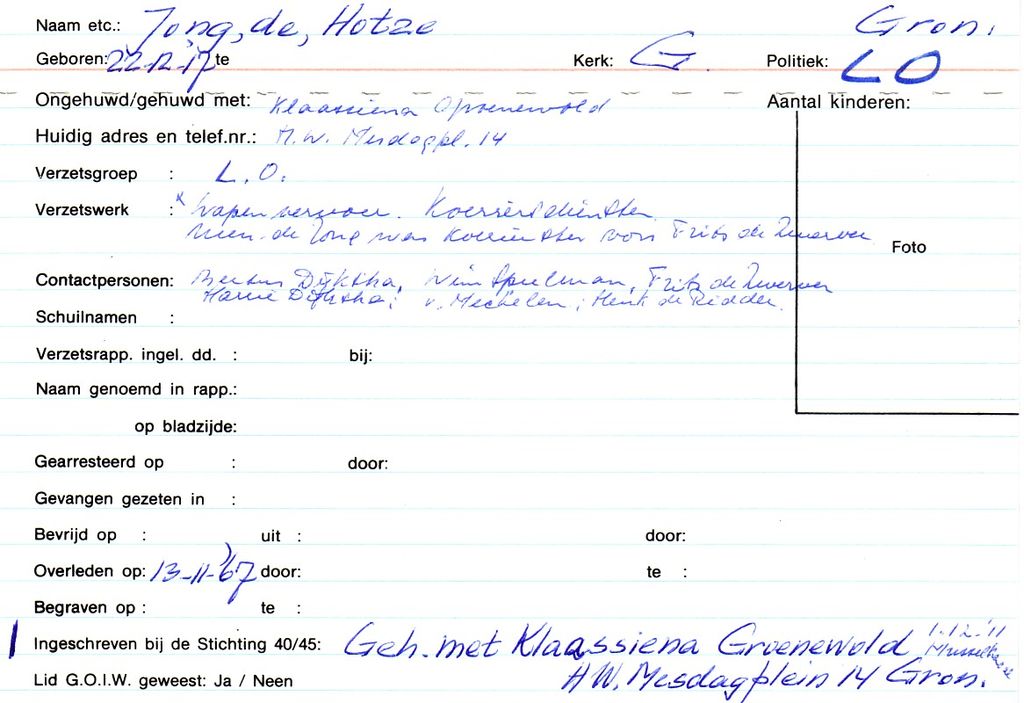 Naam etc.: Jong, de, Hotze Gron.
Geboren: 22-12-'17 te Kerk: G. Politiek: LO
Ongehuwd/gehuwd met: Klaassiena Groenewold Aantal kinderen:
Huidig adres en telef.nr.: H.W. Mesdagpl. 14
Verzetsgroep : L.O.
Verzetswerk : x Wapenvervoer. Koeriersdiensten
Mevr. de Jong was koerierster von Frits de Zwerver
Foto
Contactpersonen: Bertus Dijkstha, Wim Speelman, Frits de Zwerver
Harrie Dijkstha; v. Mechelen; Henk de Ridder.
Schuilnamen :
Verzetsrapp. ingel. dd. : bij:
Naam genoemd in rapp.:
op bladzijde:
Gearresteerd op : door:
Gevangen gezeten in :
Bevrijd op : uit : door:
Overleden op: 13-11-'67 door: te :
Begraven op : te :
Ingeschreven bij de Stichting 40/45: Geh. met Klaassiena Groenewold 1.12.'11
Lid G.O.I.W. geweest: Ja / Neen H.W. Mesdagplein 14 Gron.